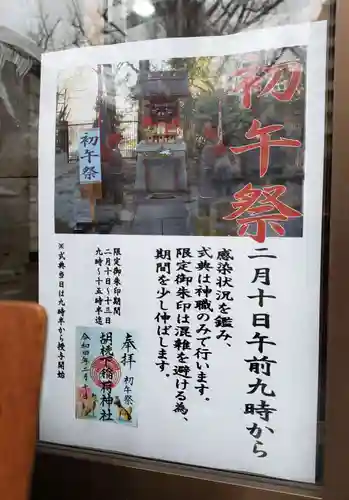 初午祭
初午
二月十日午前九時から
感染状況を鑑み、
式典は神職のみで行います。
限定御朱印は混雑を避ける為、
期間を少し伸ばします。
限定御朱印期間
二月十日〜十三日
九時〜十五時半迄
※式典当日は九時半から授与開始
奉拝
初午祭
胡桃下稲荷神社
令和四年二月